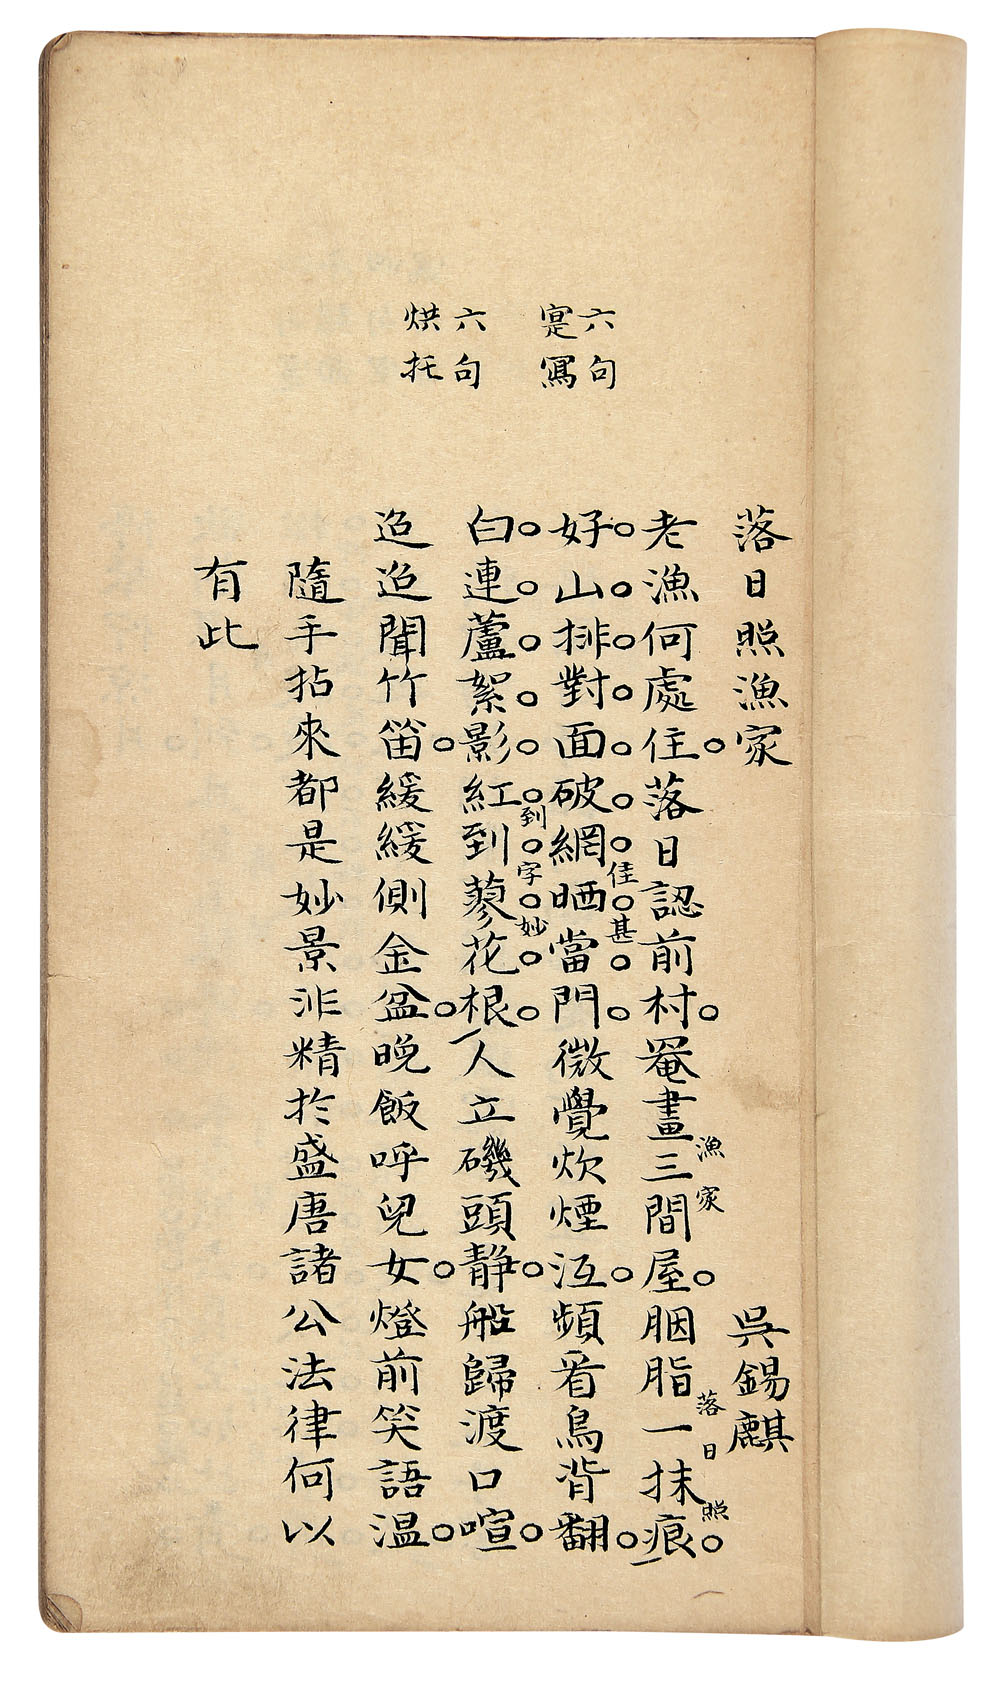 六句
寔寫
六句
烘托
落日照漁家 吳錫麒
老漁何處住落日認前村罨畫三間屋胭脂一抹痕
漁家
落日照
好山排對面破網晒當門微覺炊煙沍頻看鳥背翻
佳甚
白連蘆絮影紅到蓼花根人立磯頭静船歸渡口喧
到字妙
迢迢聞竹笛緩緩側金盆晚飯呼兒女燈前笑語温
隨手拈來都是妙景非精於盛唐諸公法律何以
有此